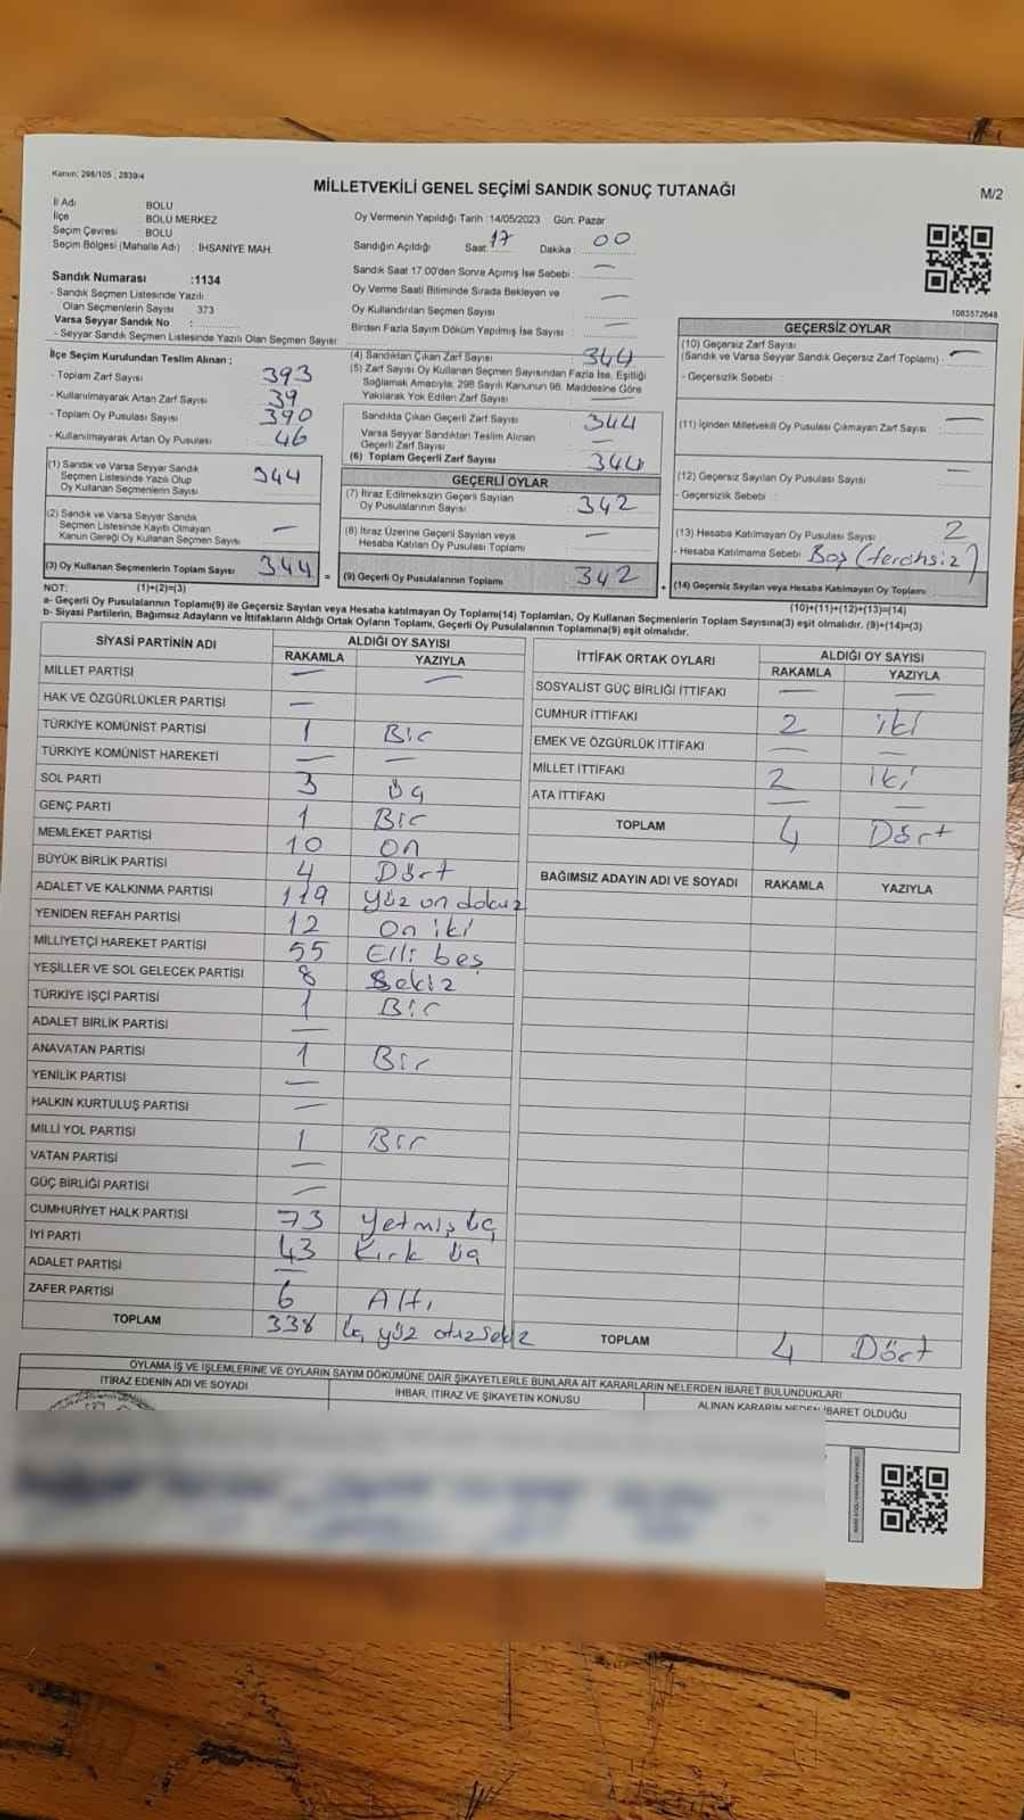 Kanun; 298/105 ; 2839/4
MİLLETVEKİLİ GENEL SEÇİMİ SANDIK SONUÇ TUTANAĞI
M/2
İl Adı BOLU
İlçe BOLU MERKEZ
Seçim Çevresi : BOLU
Seçim Bölgesi (Mahalle Adı) : İHSANİYE MAH.
Sandık Numarası :1134
- Sandık Seçmen Listesinde Yazılı
Olan Seçmenlerin Sayısı 373
Varsa Seyyar Sandık No :
- Seyyar Sandık Seçmen Listesinde Yazılı Olan Seçmen Sayısı
Oy Vermenin Yapıldığı Tarih :14/05/2023 Gün: Pazar
Sandığın Açıldığı Saat: 17 Dakika : 00
Sandık Saat 17.00'den Sonra Açılmış İse Sebebi : —
Oy Verme Saati Bitiminde Sırada Bekleyen ve
Oy Kullandırılan Seçmen Sayısı —
Birden Fazla Sayım Döküm Yapılmış İse Sayısı —
1083572648
İlçe Seçim Kurulundan Teslim Alınan :
- Toplam Zarf Sayısı 393
- Kullanılmayarak Artan Zarf Sayısı 39
- Toplam Oy Pusulası Sayısı 390
- Kullanılmayarak Artan Oy Pusulası 46
(1) Sandık ve Varsa Seyyar Sandık
Seçmen Listesinde Yazılı Olup
Oy Kullanan Seçmenlerin Sayısı 344
(2) Sandık ve Varsa Seyyar Sandık
Seçmen Listesinde Kayıtlı Olmayan
Kanun Gereği Oy Kullanan Seçmen Sayısı —
(3) Oy Kullanan Seçmenlerin Toplam Sayısı 344 =
(1)+(2)=(3)
(4) Sandıktan Çıkan Zarf Sayısı 344
(5) Zarf Sayısı Oy Kullanan Seçmen Sayısından Fazla İse, Eşitliği
Sağlamak Amacıyla; 298 Sayılı Kanunun 98. Maddesine Göre
Yakılarak Yok Edilen Zarf Sayısı
Sandıkta Çıkan Geçerli Zarf Sayısı 344
Varsa Seyyar Sandıktan Teslim Alınan
Geçerli Zarf Sayısı —
(6) Toplam Geçerli Zarf Sayısı 344
GEÇERLİ OYLAR
(7) İtiraz Edilmeksizin Geçerli Sayılan
Oy Pusulalarının Sayısı 342
(8) İtiraz Üzerine Geçerli Sayılan veya
Hesaba Katılan Oy Pusulası Toplamı —
(9) Geçerli Oy Pusulalarının Toplamı 342 +
GEÇERSİZ OYLAR
(10) Geçersiz Zarf Sayısı
(Sandık ve Varsa Seyyar Sandık Geçersiz Zarf Toplamı) : —
- Geçersizlik Sebebi :
(11) İçinden Milletvekili Oy Pusulası Çıkmayan Zarf Sayısı : —
(12) Geçersiz Sayılan Oy Pusulası Sayısı —
- Geçersizlik Sebebi :
(13) Hesaba Katılmayan Oy Pusulası Sayısı 2
- Hesaba Katılmama Sebebi : Boş (tercihsiz)
(14) Geçersiz Sayılan veya Hesaba Katılmayan Oy Toplamı
(10)+(11)+(12)+(13)=(14)
NOT:
a- Geçerli Oy Pusulalarının Toplamı(9) ile Geçersiz Sayılan veya Hesaba katılmayan Oy Toplamı(14) Toplamları, Oy Kullanan Seçmenlerin Toplam Sayısına(3) eşit olmalıdır. (9)+(14)=(3)
b- Siyasi Partilerin, Bağımsız Adayların ve İttifakların Aldığı Ortak Oyların Toplamı, Geçerli Oy Pusulalarının Toplamına(9) eşit olmalıdır.
SİYASİ PARTİNİN ADI ALDIĞI OY SAYISI
RAKAMLA YAZIYLA
MİLLET PARTİSİ — —
HAK VE ÖZGÜRLÜKLER PARTİSİ —
TÜRKİYE KOMÜNİST PARTİSİ 1 Bir
TÜRKİYE KOMÜNİST HAREKETİ — —
SOL PARTİ 3 Üç
GENÇ PARTİ 1 Bir
MEMLEKET PARTİSİ 10 On
BÜYÜK BİRLİK PARTİSİ 4 Dört
ADALET VE KALKINMA PARTİSİ 119 Yüz on dokuz
YENİDEN REFAH PARTİSİ 12 On iki
MİLLİYETÇİ HAREKET PARTİSİ 55 Elli beş
YEŞİLLER VE SOL GELECEK PARTİSİ 8 Sekiz
TÜRKİYE İŞÇİ PARTİSİ 1 Bir
ADALET BİRLİK PARTİSİ —
ANAVATAN PARTİSİ 1 Bir
YENİLİK PARTİSİ —
HALKIN KURTULUŞ PARTİSİ —
MİLLİ YOL PARTİSİ 1 Bir
VATAN PARTİSİ —
GÜÇ BİRLİĞİ PARTİSİ —
CUMHURİYET HALK PARTİSİ 73 Yetmiş üç
İYİ PARTİ 43 Kırk üç
ADALET PARTİSİ —
ZAFER PARTİSİ 6 Altı
TOPLAM 338 Üç yüz otuz sekiz
İTTİFAK ORTAK OYLARI ALDIĞI OY SAYISI
RAKAMLA YAZIYLA
SOSYALİST GÜÇ BİRLİĞİ İTTİFAKI — —
CUMHUR İTTİFAKI 2 iki
EMEK VE ÖZGÜRLÜK İTTİFAKI — —
MİLLET İTTİFAKI 2 iki
ATA İTTİFAKI — —
TOPLAM 4 Dört
BAĞIMSIZ ADAYIN ADI VE SOYADI RAKAMLA YAZIYLA
TOPLAM 4 Dört
OYLAMA İŞ VE İŞLEMLERİNE VE OYLARIN SAYIM DÖKÜMÜNE DAİR ŞİKAYETLERLE BUNLARA AİT KARARLARIN NELERDEN İBARET BULUNDUKLARI
İTİRAZ EDENİN ADI VE SOYADI İHBAR, İTİRAZ VE ŞİKAYETİN KONUSU ALINAN KARARIN NEDEN İBARET OLDUĞU